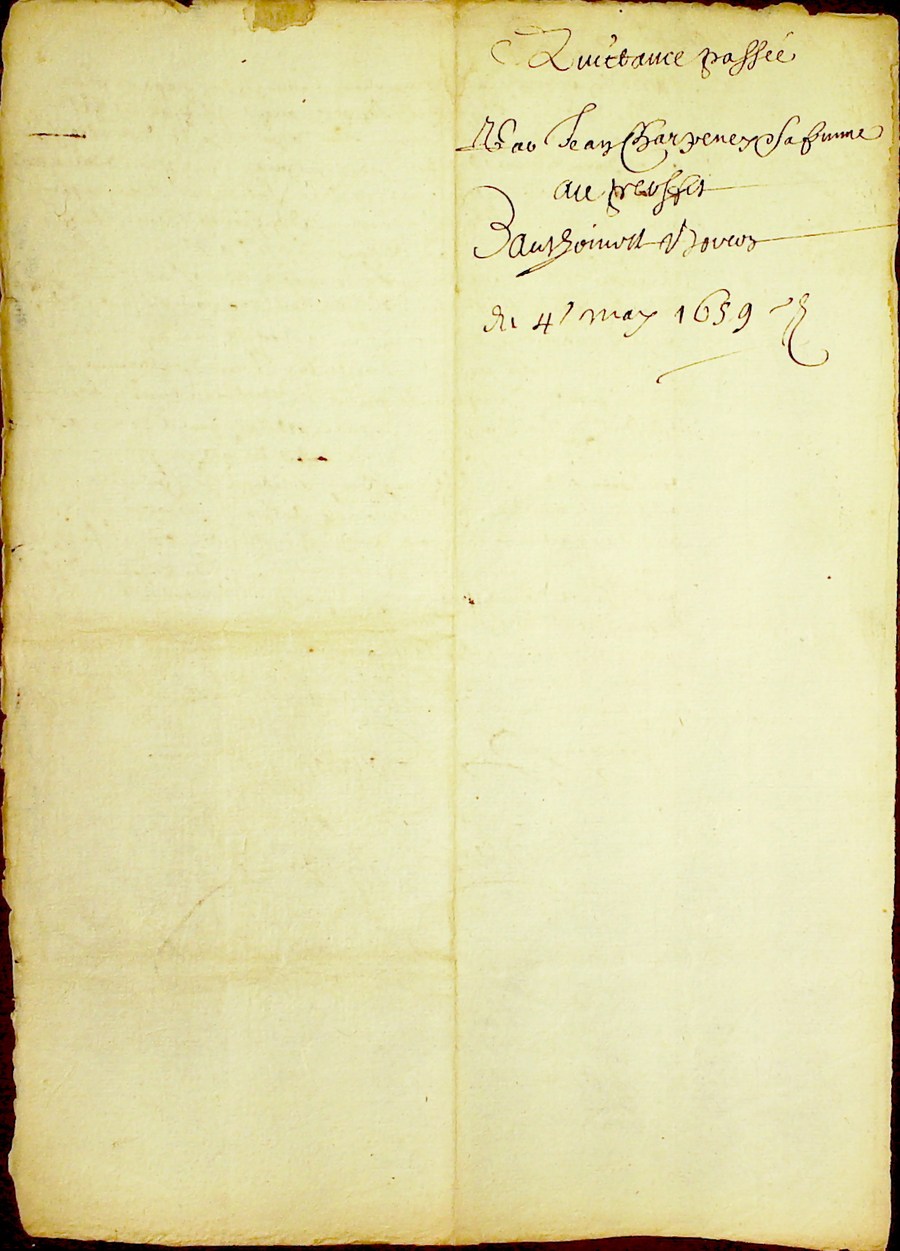 Quittance passée
Par Jean Charveney & sa femme
au proffit
d'Anthoinett
du 4e may 1659